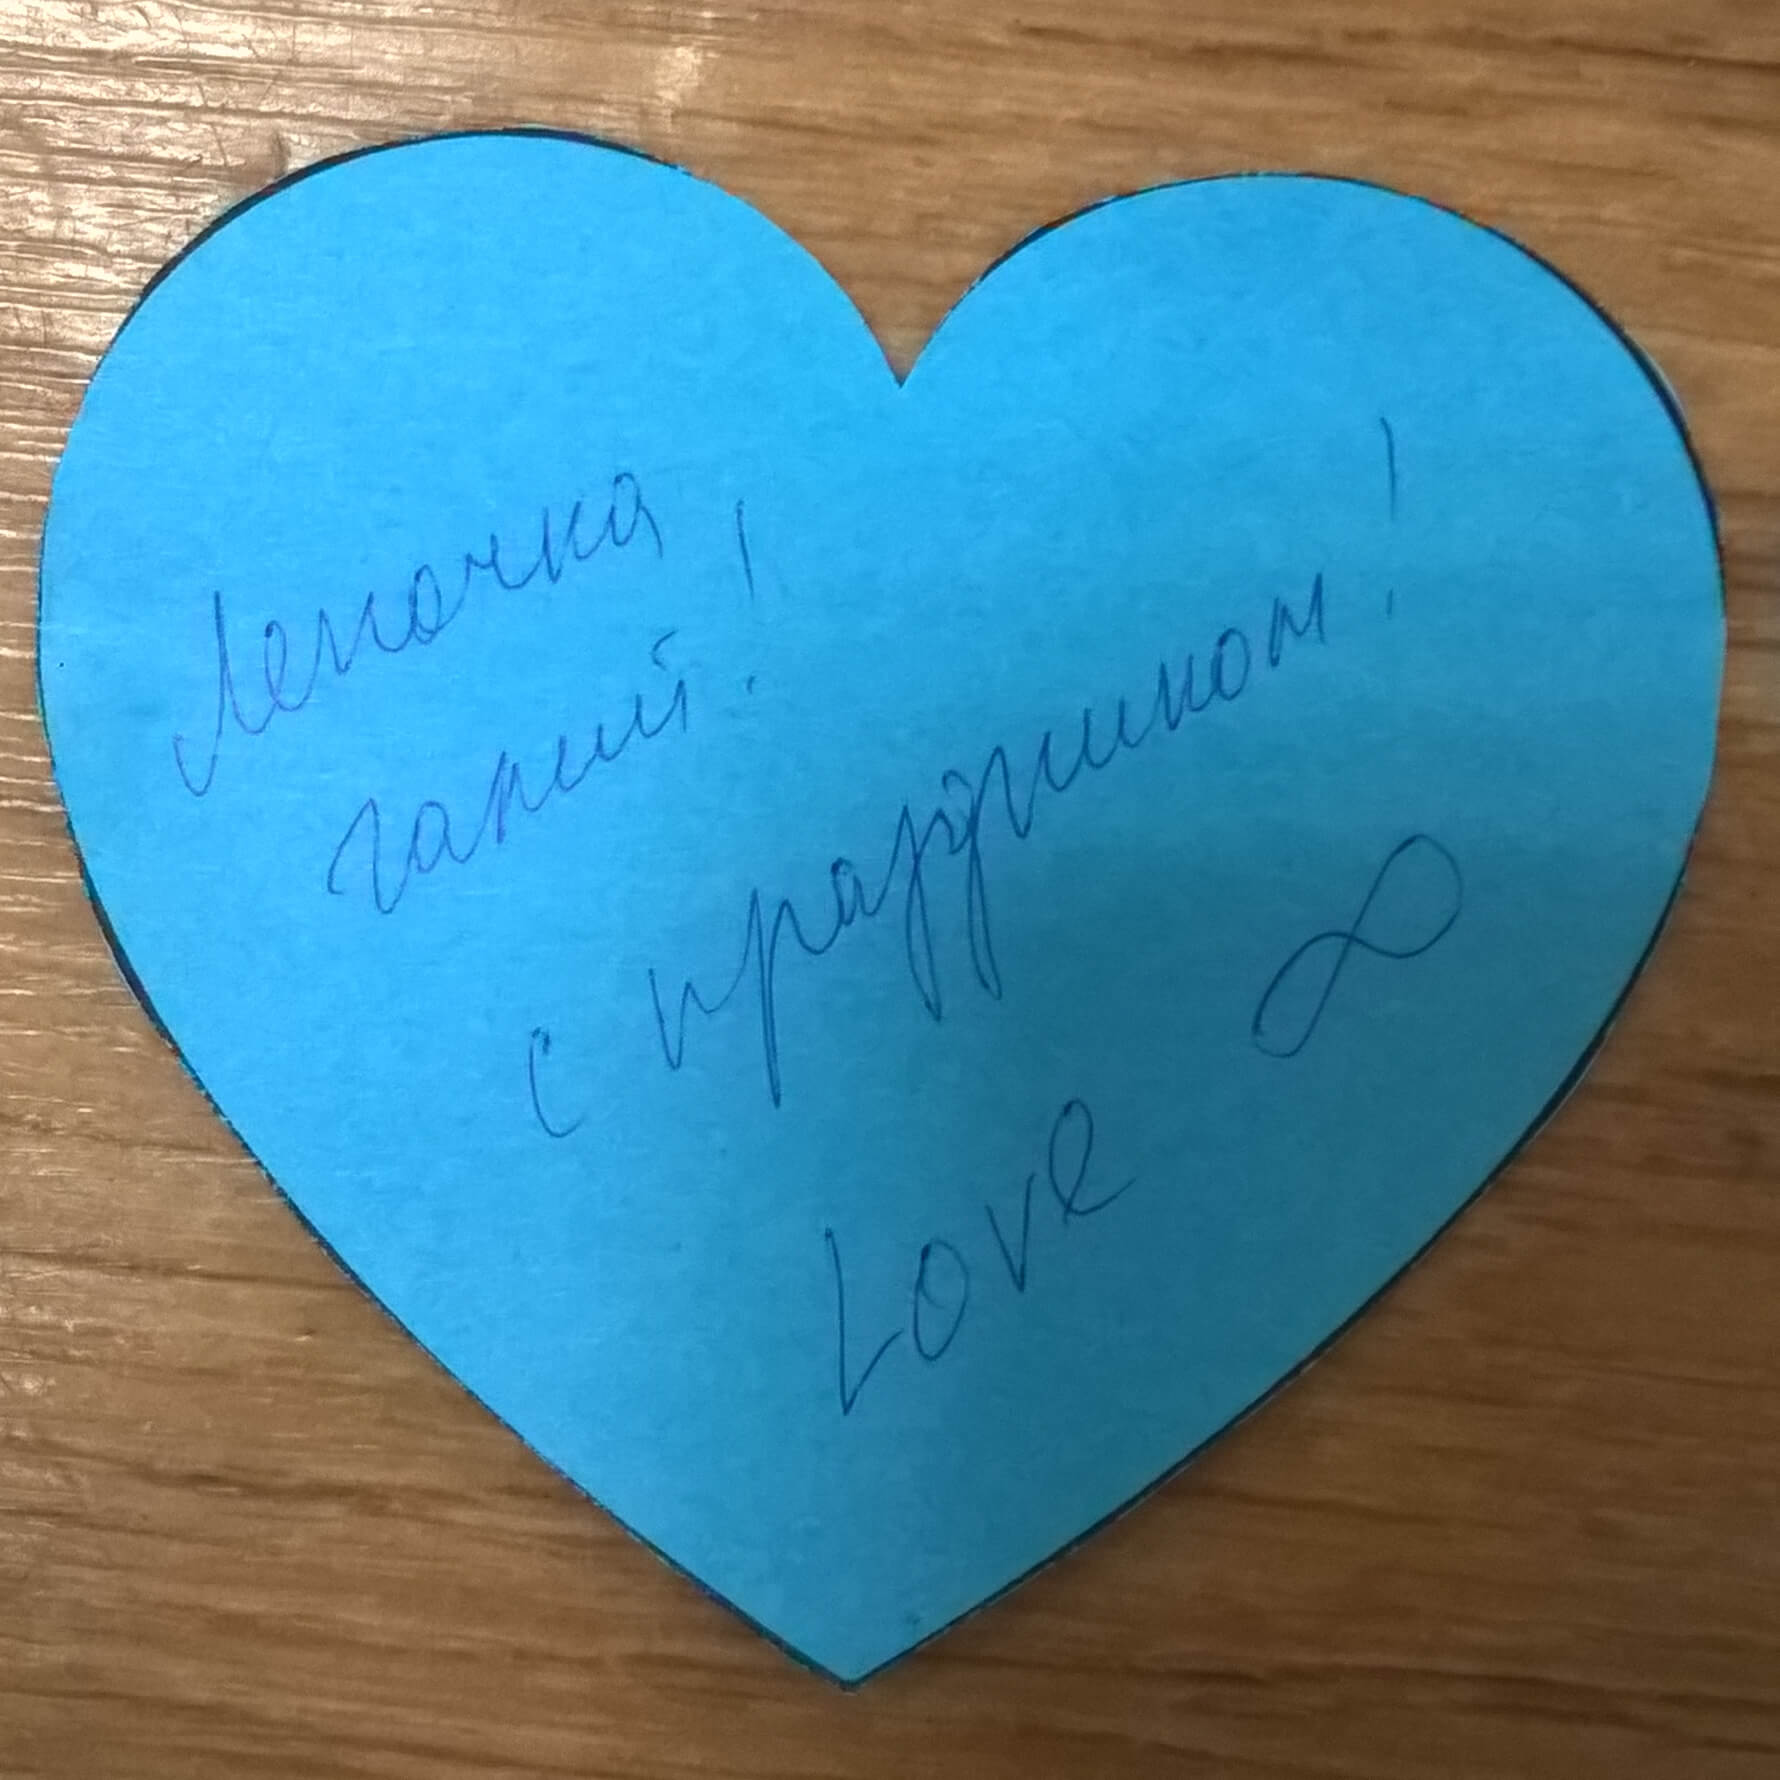 Леночка
гений!
с праздником!
Love ∞